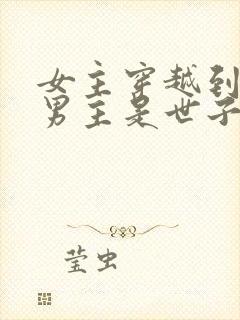 女主穿越到
男主是世子
莹虫